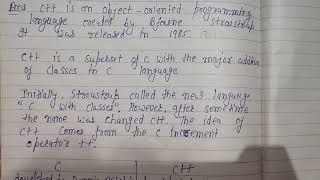 Ans) C++ is an object-oriented programming
language created by Bjarne Stroustrup
It was released in 1985.
C++ is a superset of C with the major addition
of classes in C language
Initially, Stroustrup called the new language
"C with classes". However, after sometime
the name was changed C++. The idea of
C++ comes from the C increment
operator ++.
C C++
developed by Dennis